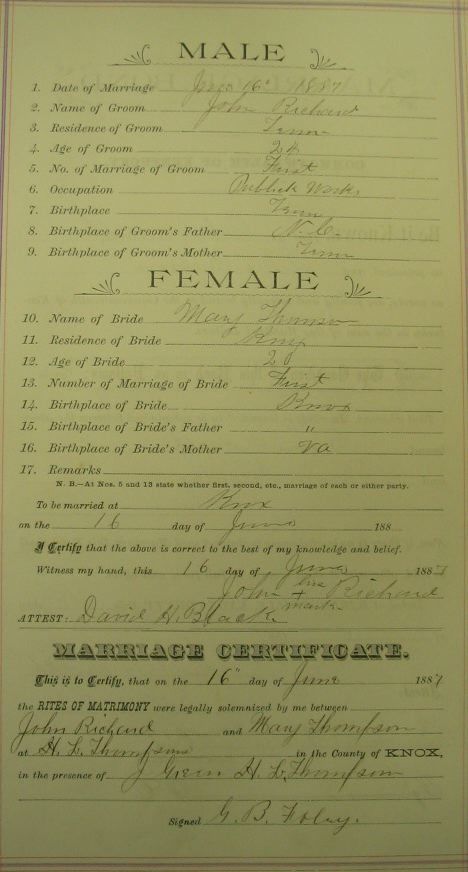 MALE
1. Date of Marriage June 16" 1887
2. Name of Groom John Richard
3. Residence of Groom Tenn
4. Age of Groom
5. No. of Marriage of Groom First
6. Occupation Publick Works
7. Birthplace Tenn
8. Birthplace of Groom's Father N.C.
9. Birthplace of Groom's Mother Tenn
FEMALE
10. Name of Bride Mary Thomson
11. Residence of Bride Knox
12. Age of Bride
13. Number of Marriage of Bride First
14. Birthplace of Bride Knox
15. Birthplace of Bride's Father "
16. Birthplace of Bride's Mother Va
17. Remarks
N. B.—At Nos. 5 and 13 state whether first, second, etc., marriage of each or either party.
To be married at Knox
on the 16 day of June 188
I Certify that the above is correct to the best of my knowledge and belief.
Witness my hand, this 16 day of June 1887
John his + Richard
mark
ATTEST: David H. Black
MARRIAGE CERTIFICATE.
This is to Certify, that on the 16" day of June 1887
the RITES OF MATRIMONY were legally solemnized by me between
John Richard and Mary Thompson
at H. L. Thompsons in the County of KNOX,
in the presence of J Green H. L. Thompson
Signed G. B. Foley.